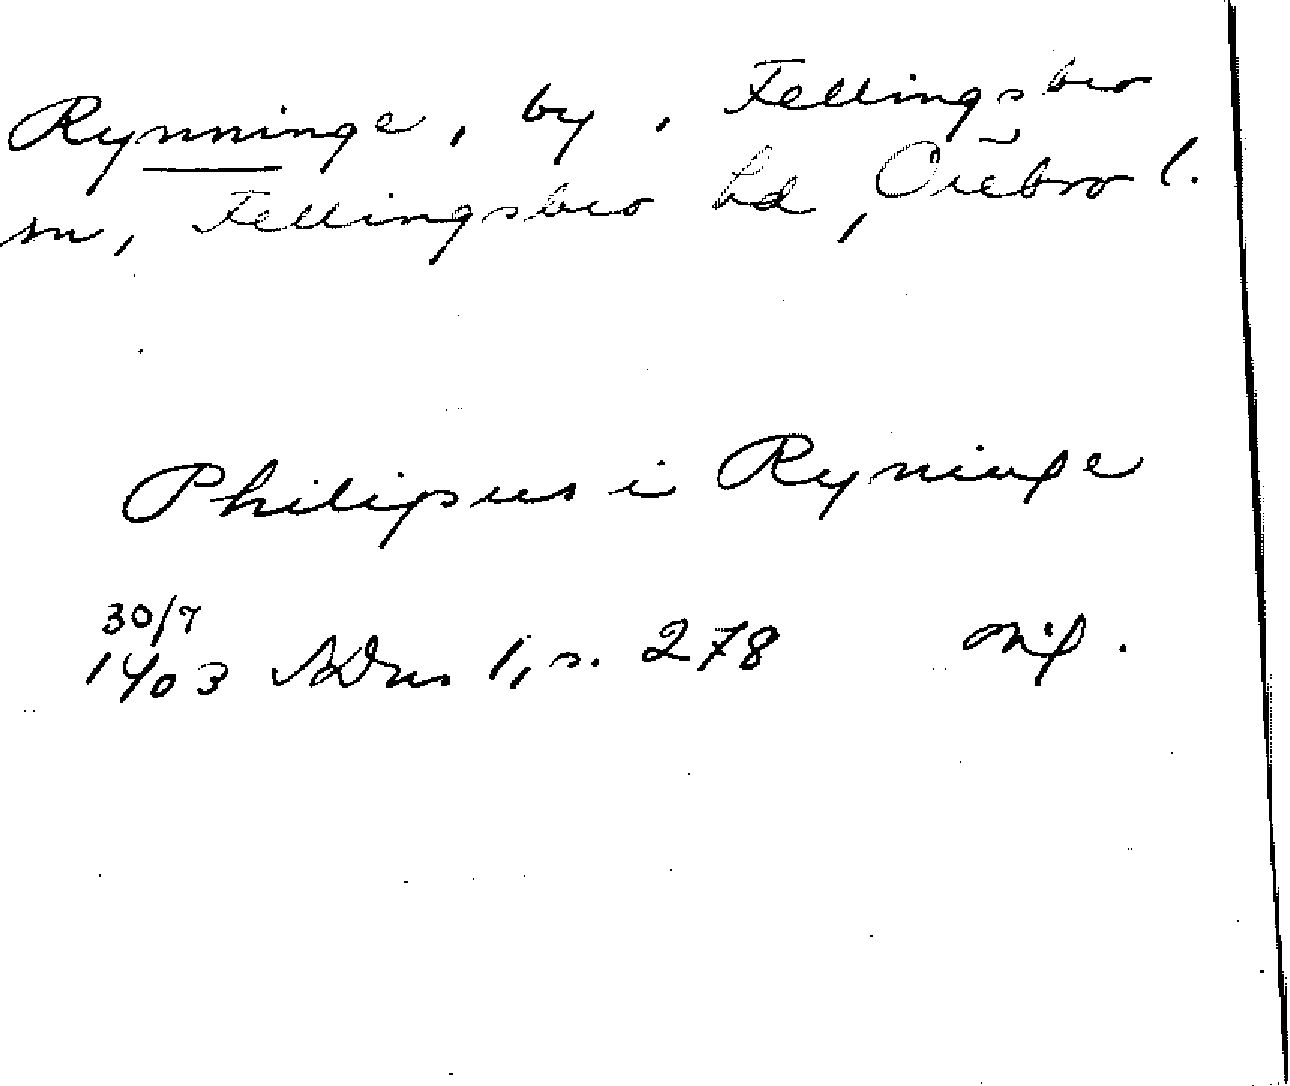 Rynninge, by, Fellingsbro
sn, Fellingsbro hd, Örebro l.
Philipus i Ryninge
30/7
1403 SDns 1, s. 278